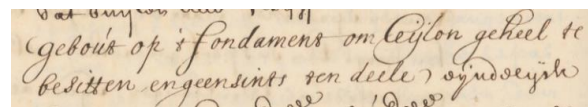 gebout op 't fondament om Ceijlon geheel te
besitten en geensints ten deele